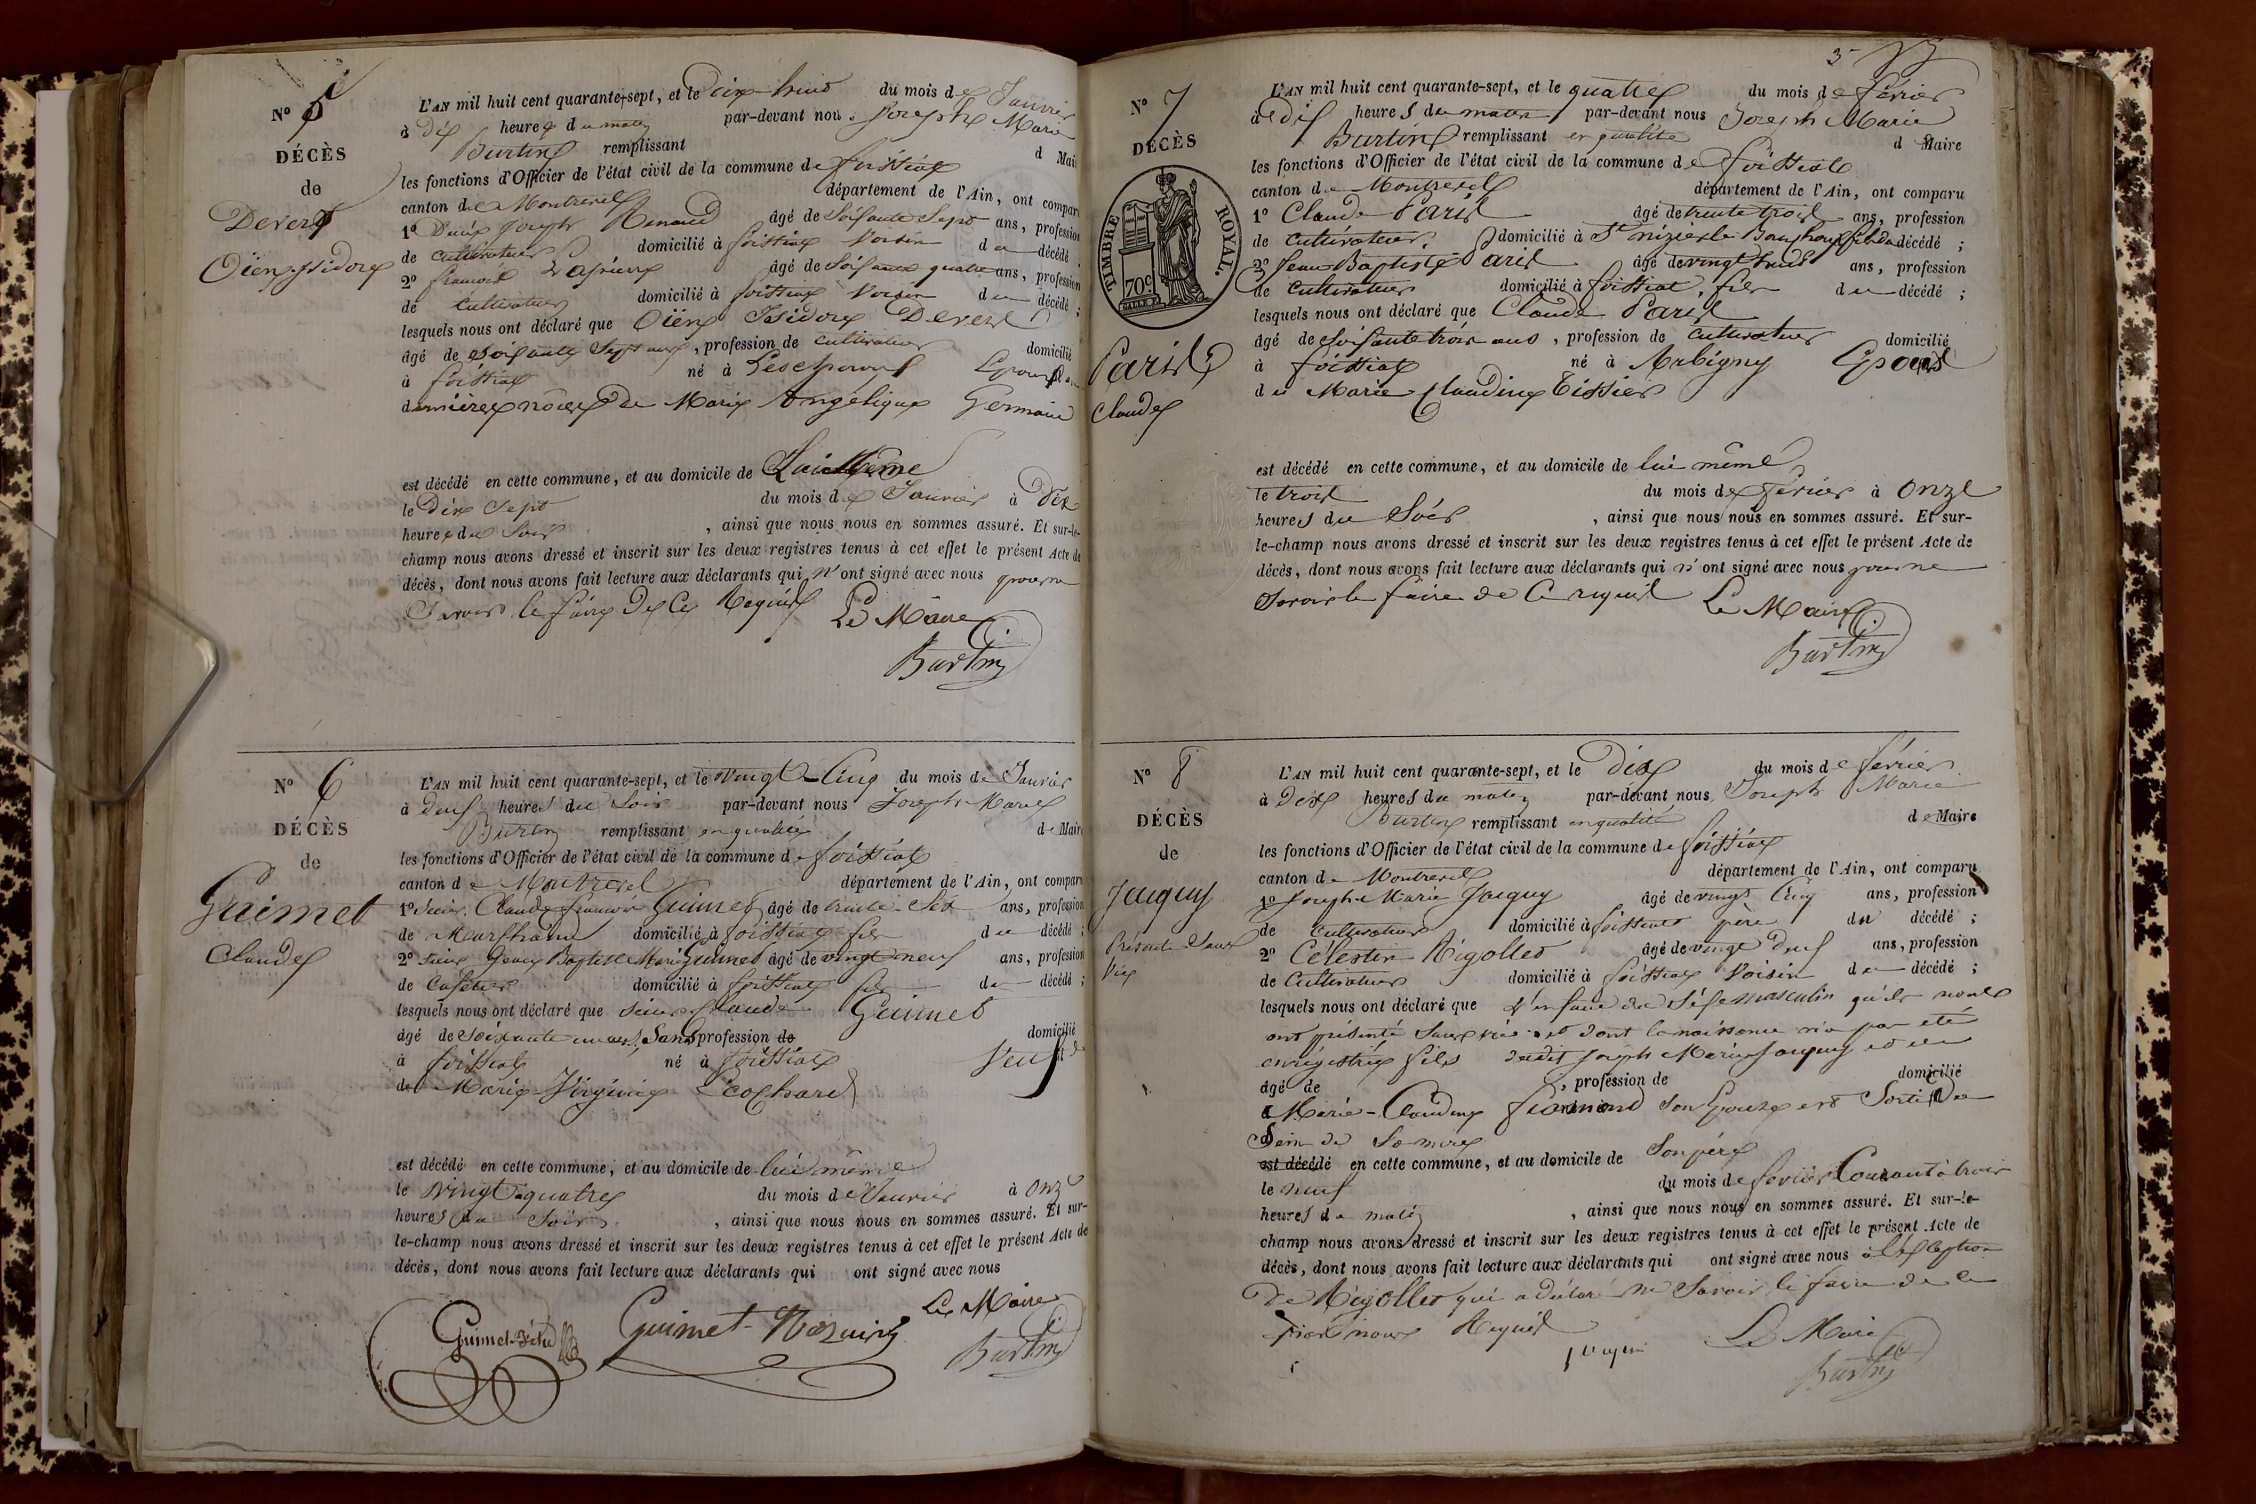 N° 5
DÉCÈS
de
Devers
Oiën isidore
L'AN mil huit cent quarante-sept, et le Dix huit du mois de Janvier
à Dix heures du matin par-devant nous Joseph Marie
Burtin remplissant d Maire
les fonctions d'Officier de l'état civil de la commune de foissiat
canton de Montrevel département de l'Ain, ont comparu
1° Denis Joseph Renaud âgé de Soixante Sept ans, profession
de cultivateur domicilié à foissiat Voisin du décédé ;
2° françois âgé de Soixante quatre ans, profession
de cultivateur domicilié à foissiat Voisin du décédé ;
lesquels nous ont déclaré que Oiën Isidore Devers
âgé de Soixante Sept ans, profession de cultivateur domicilié
à foissiat né à Epoux en
dernières noces de Marie Angélique Germain
est décédé en cette commune, et au domicile de Lui Même
le Dix Sept du mois de Janvier à Dix
heures du Soir, ainsi que nous nous en sommes assuré. Et sur-le-
champ nous avons dressé et inscrit sur les deux registres tenus à cet effet le présent Acte de
décès, dont nous avons fait lecture aux déclarants qui n'ont signé avec nous pour ne
Savoir le faire De Ce Requis Le Maire
Burtin
N° 6
DÉCÈS
de
Guimet
Claude
L'AN mil huit cent quarante-sept, et le Vingt-Cinq du mois de Janvier
à Deux heures du Soir par-devant nous Joseph Marie
Burtin remplissant en qualité de Maire
les fonctions d'Officier de l'état civil de la commune de foissiat
canton de Montrevel département de l'Ain, ont comparu
1° Sieur Claude francois Guimet âgé de trente-Six ans, profession
de Marchand domicilié à foissiat fils du décédé ;
2° Sieur Jean Baptiste Marie Guimet âgé de vingt neuf ans, profession
de Cafetier domicilié à foissiat fils du décédé ;
lesquels nous ont déclaré que sieur Claude Guimet
âgé de Soixante un ans, Sans profession de domicilié
à foissiat né à foissiat Veuf
de Marie-Virginie Cochard
est décédé en cette commune, et au domicile de lui même
le vingt quatre du mois de Janvier à onze
heures du Soir, ainsi que nous nous en sommes assuré. Et sur-
le-champ nous avons dressé et inscrit sur les deux registres tenus à cet effet le présent Acte de
décès, dont nous avons fait lecture aux déclarants qui ont signé avec nous
Le Maire
Guimet Guimet Burtin
3
N° 7
DÉCÈS
TIMBRE ROYAL.
70c.
Paris
Claude
L'AN mil huit cent quarante-sept, et le quatre du mois de février
à Dix heures du matin par-devant nous Joseph Marie
Burtin remplissant en qualité d Maire
les fonctions d'Officier de l'état civil de la commune de foissiat
canton de Montrevel département de l'Ain, ont comparu
1° Claude Paris âgé de trente trois ans, profession
de cultivateur, domicilié à St nizier le Bouchoux fils du décédé ;
2° Jean Baptiste Paris âgé de vingt huit ans, profession
de cultivateur domicilié à foissiat, fils du décédé ;
lesquels nous ont déclaré que Claude Paris
âgé de Soixante trois ans, profession de cultivateur domicilié
à foissiat né à Arbigny Epoux
de Marie Claudine Tissier
est décédé en cette commune, et au domicile de lui même
le trois du mois de février à onze
heures du Soir, ainsi que nous nous en sommes assuré. Et sur-
le-champ nous avons dressé et inscrit sur les deux registres tenus à cet effet le présent Acte de
décès, dont nous avons fait lecture aux déclarants qui n'ont signé avec nous pour ne
Savoir le faire de Ce requis Le Maire
Burtin
N° 8
DÉCÈS
de
Jauguy
Présenté Sans
Vie
L'AN mil huit cent quarante-sept, et le Dix du mois de février
à Dix heures du matin par-devant nous Joseph Marie
Burtin remplissant en qualité de Maire
les fonctions d'Officier de l'état civil de la commune de foissiat
canton de Montrevel département de l'Ain, ont comparu
1° Joseph Marie Jauguy âgé de vingt Cinq ans, profession
de cultivateur domicilié à foissiat père du décédé ;
2° Célestin Rigollet âgé de vingt Deux ans, profession
de Cultivateur domicilié à foissiat Voisin du décédé ;
lesquels nous ont déclaré que l'enfant du Séxe masculin qu'ils nous
ont présenté Sans vie et dont la naissance n'a pas été
enregistrée fils dudit Joseph Marie Jauguy et de
âgé de , profession de domicilié
à Marie-Claudine son Epouse est Sorti Du
Sein de Sa mère
est décédé en cette commune, et au domicile de Son père
le neuf du mois de février Courant à trois
heures du matin, ainsi que nous nous en sommes assuré. Et sur-le-
champ nous avons dressé et inscrit sur les deux registres tenus à cet effet le présent Acte de
décès, dont nous avons fait lecture aux déclarants qui ont signé avec nous à l'Exception
De Rigollet qui a déclaré ne Savoir le faire de ce
par nous Requis Le Maire
Burtin